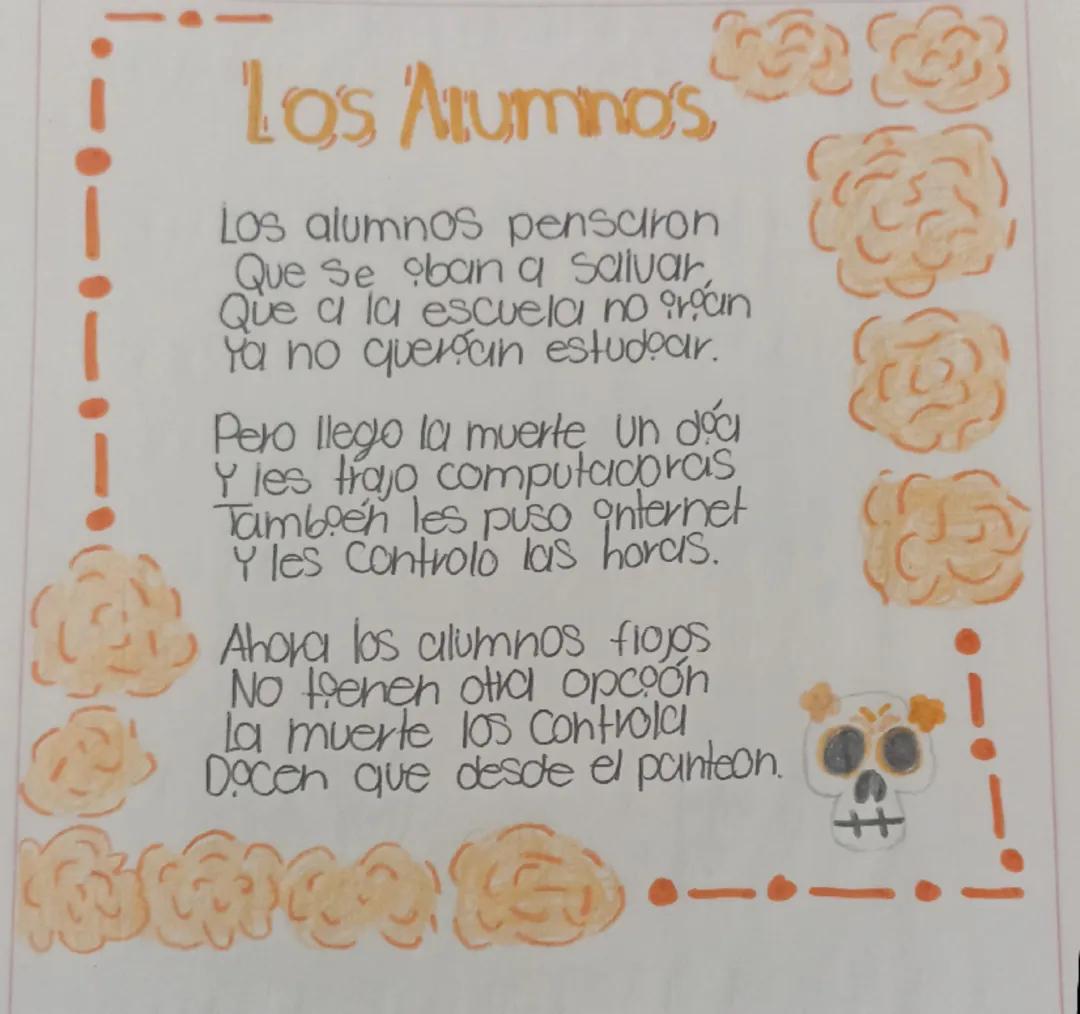 Los Alumnos
Los alumnos pensaron
Que se iban a salvar,
Que a la escuela no irían
Ya no querían estudiar.
Pero llego la muerte un día
Y les trajo computadoras
También les puso internet
Y les controlo las horas.
Ahora los alumnos flojos
No tienen otra opción
La muerte los controla
Dicen que desde el panteon.